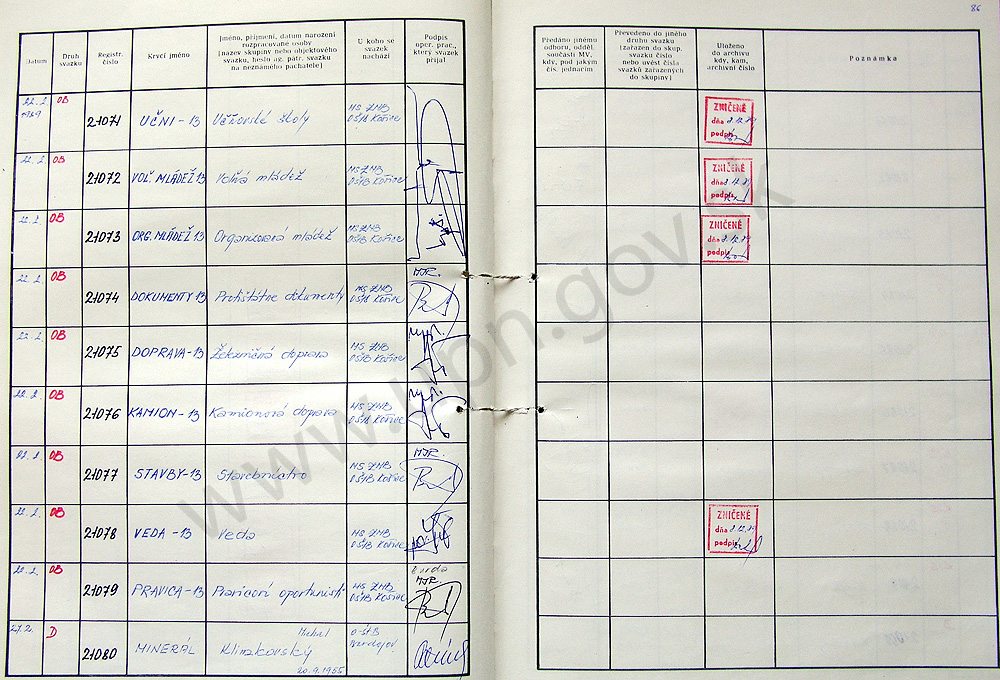 86
Datum
Druh svazku
Registr. číslo
Krycí jméno
Jméno, příjmení, datum narození
rozpracované osoby
[název skupiny nebo objektového
svazku, heslo ag. pátr. svazku
na neznámého pachatele]
U koho se
svazek
nachází
Podpis
oper. prac.,
který svazek
přijal
Předáno jinému
odboru, odděl.
součásti MV,
kdy, pod jakým
čís. jednacím
Převedeno do jiného
druhu svazku
[zařazen do skup.
svazku číslo
nebo uvést čísla
svazků zařazených
do skupiny]
Uloženo
do archivu
kdy, kam,
archivní číslo
Poznámka
22. 2. 1989 OB 21071 UČNI - 13 Učňovské školy MS ZNB OŠtB Košice
ZNIČENÉ
dňa 8.12.89
podpis
22. 2. OB 21072 VOĽ. MLÁDEŽ 13 Voľná mládež MS ZNB OŠtB Košice
ZNIČENÉ
dňa 8.12.89
podpis
22. 2. OB 21073 ORG. MLÁDEŽ 13 Organizovaná mládež MS ZNB OŠtB Košice
ZNIČENÉ
dňa 8.12.89
podpis
22. 2. OB 21074 DOKUMENTY 13 Protištátne dokumenty MS ZNB OŠtB Košice MJR.
22. 2. OB 21075 DOPRAVA - 13 Železničná doprava MS ZNB OŠtB Košice
22. 2. OB 21076 KAMION - 13 Kamionová doprava MS ZNB OŠtB Košice
22. 2. OB 21077 STAVBY - 13 Stavebníctvo MS ZNB OŠtB Košice MJR.
22. 2. OB 21078 VEDA - 13 Veda MS ZNB OŠtB Košice
ZNIČENÉ
dňa 8.12.89
podpis
22. 2. OB 21079 PRAVICA - 13 Pravicoví oportunisti MS ZNB OŠtB Košice MJR.
27. 2. D 21080 MINERÁL Klimkovský Michal 20.9.1955 O-ŠtB Bardejov
www.upn.gov.sk